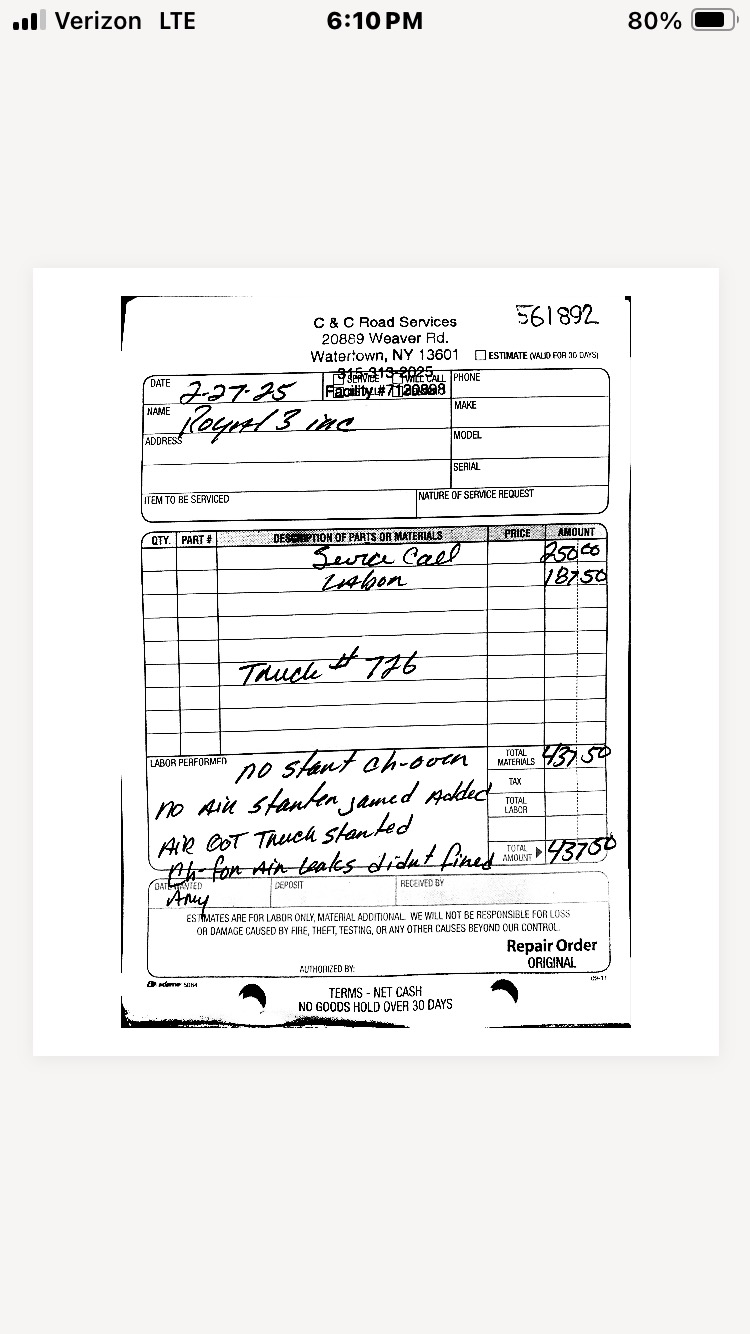 Verizon LTE 6:10 PM 80%
561892
C & C Road Services
20889 Weaver Rd.
Watertown, NY 13601
ESTIMATE (VALID FOR 30 DAYS)
315-313-2025
SERVICE WILL CALL
Facility #7120898
DATE 2-27-25
PHONE
NAME Royal 3 inc
MAKE
ADDRESS
MODEL
SERIAL
ITEM TO BE SERVICED
NATURE OF SERVICE REQUEST
QTY. PART # DESCRIPTION OF PARTS OR MATERIALS PRICE AMOUNT
Service Call 250 00
Labor 187 50
Truck # 726
LABOR PERFORMED no start ch-over
TOTAL MATERIALS 437 50
TAX
no Air starter jamed Added
TOTAL LABOR
AiR GOT Truck Started
Ch- for Air leaks didnt fined
TOTAL AMOUNT 437 50
DATE WANTED DEPOSIT RECEIVED BY
Any
ESTIMATES ARE FOR LABOR ONLY, MATERIAL ADDITIONAL. WE WILL NOT BE RESPONSIBLE FOR LOSS
OR DAMAGE CAUSED BY FIRE, THEFT, TESTING, OR ANY OTHER CAUSES BEYOND OUR CONTROL.
Repair Order
ORIGINAL
AUTHORIZED BY:
adams 5084
TERMS - NET CASH
NO GOODS HOLD OVER 30 DAYS